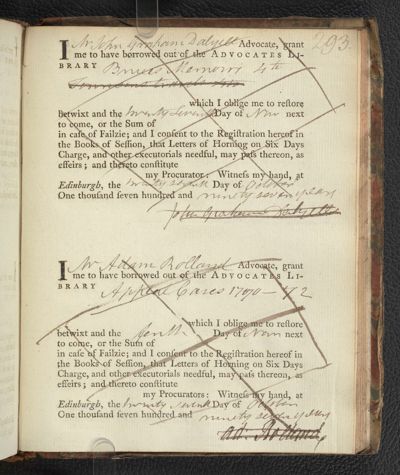 293.
I Mr John Graham Dalyell Advocate, grant
me to have borrowed out of the ADVOCATES LI-
BRARY Bruce's Memoirs 4to
which I oblige me to reſtore
betwixt and the twenty seventh Day of Nov next
to come, or the Sum of
in caſe of Failzie; and I conſent to the Regiſtration hereof in
the Books of Seſſion, that Letters of Horning on Six Days
Charge, and other executorials needful, may paſs thereon, as
effeirs; and thereto conſtitute
my Procurators: Witneſs my hand, at
Edinburgh, the twenty seventh Day of October
One thouſand ſeven hundred and ninety seven years
John Graham Dalyell
I Mr Adam Rolland Advocate, grant
me to have borrowed out of the ADVOCATES LI-
BRARY Appeal Cases 1790-92
which I oblige me to reſtore
betwixt and the Day of Novr next
to come, or the Sum of
in caſe of Failzie; and I conſent to the Regiſtration hereof in
the Books of Seſſion, that Letters of Horning on Six Days
Charge, and other executorials needful, may paſs thereon, as
effeirs; and thereto conſtitute
my Procurators: Witneſs my hand, at
Edinburgh, the twenty seventh Day of October
One thouſand ſeven hundred and ninety seven years
Ad. Rolland